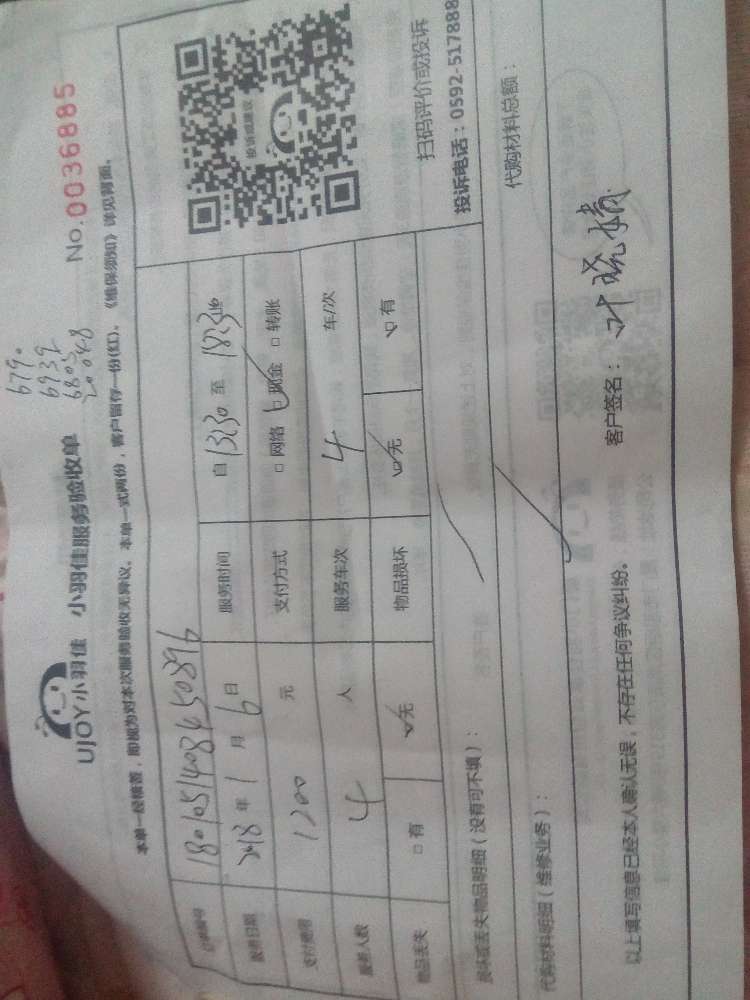 679.
6939
6805
20048
UJOY小羽佳 小羽佳服务验收单 No.0036885
本单一经签署，即视为对本次服务验收无异议。本单一式两份，客户留存一份(红)。《维保须知》详见背面。
订单编号 1801051408450896
服务日期 2018年1月6日 服务时间 自 13:30 至
支付费用 1200 元 支付方式 □网络 □现金 □转账
服务人数 4 人 服务车次 4 车/次
物品丢失 □有 □无 物品损坏 □无 □有
投诉或建议
扫码评价或投诉
投诉电话：0592-5178888
损坏或丢失物品明细（没有可不填）：
代购材料明细（维修业务）： 代购材料总额：
以上填写信息已经本人确认无误，不存在任何争议纠纷。 客户签名：叶晓精